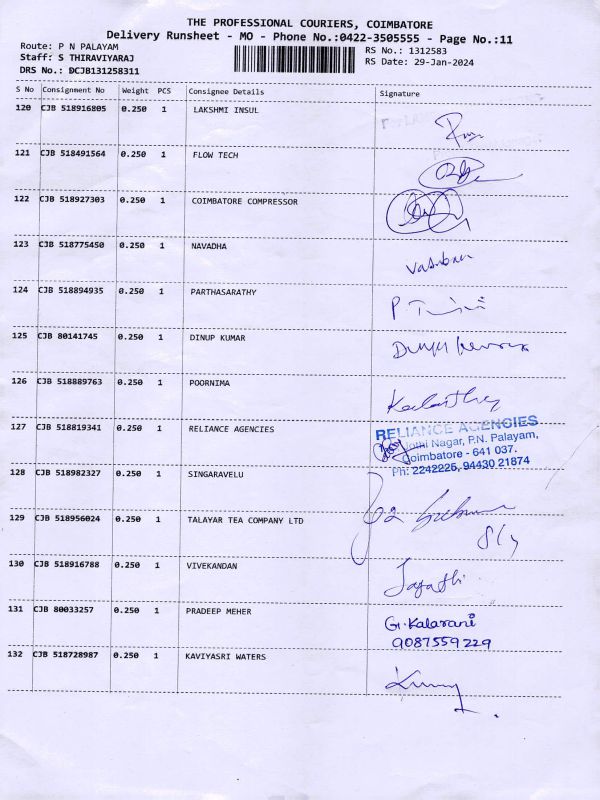 THE PROFESSIONAL COURIERS, COIMBATORE
Delivery Runsheet - MO - Phone No.:0422-3505555 - Page No.:11
Route: P N PALAYAM RS No.: 1312583
Staff: S THIRAVIYARAJ RS Date: 29-Jan-2024
DRS No.: DCJB131258311
S No Consignment No Weight PCS Consignee Details Signature
120 CJB 518916805 0.250 1 LAKSHMI INSUL
121 CJB 518491564 0.250 1 FLOW TECH
122 CJB 518927303 0.250 1 COIMBATORE COMPRESSOR
123 CJB 518775450 0.250 1 NAVADHA
124 CJB 518894935 0.250 1 PARTHASARATHY
125 CJB 80141745 0.250 1 DINUP KUMAR
126 CJB 518889763 0.250 1 POORNIMA
127 CJB 518819341 0.250 1 RELIANCE AGENCIES
RELIANCE AGENCIES
Jothi Nagar, P.N. Palayam,
Coimbatore - 641 037.
Ph: 2242225, 94430 21874
128 CJB 518982327 0.250 1 SINGARAVELU
129 CJB 518956024 0.250 1 TALAYAR TEA COMPANY LTD
130 CJB 518916788 0.250 1 VIVEKANDAN
131 CJB 80033257 0.250 1 PRADEEP MEHER
G. Kalarani
9087559229
132 CJB 518728987 0.250 1 KAVIYASRI WATERS